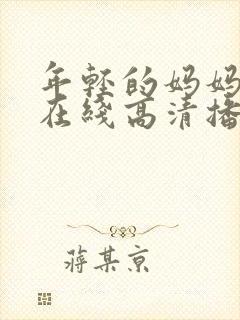 年轻的妈妈
在线高清播
蒋某京